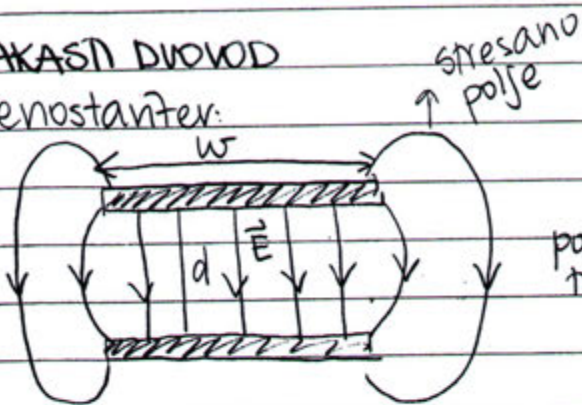 AKASTI DVOVOD
enostanter:
stresano
polje
w
d
E
po